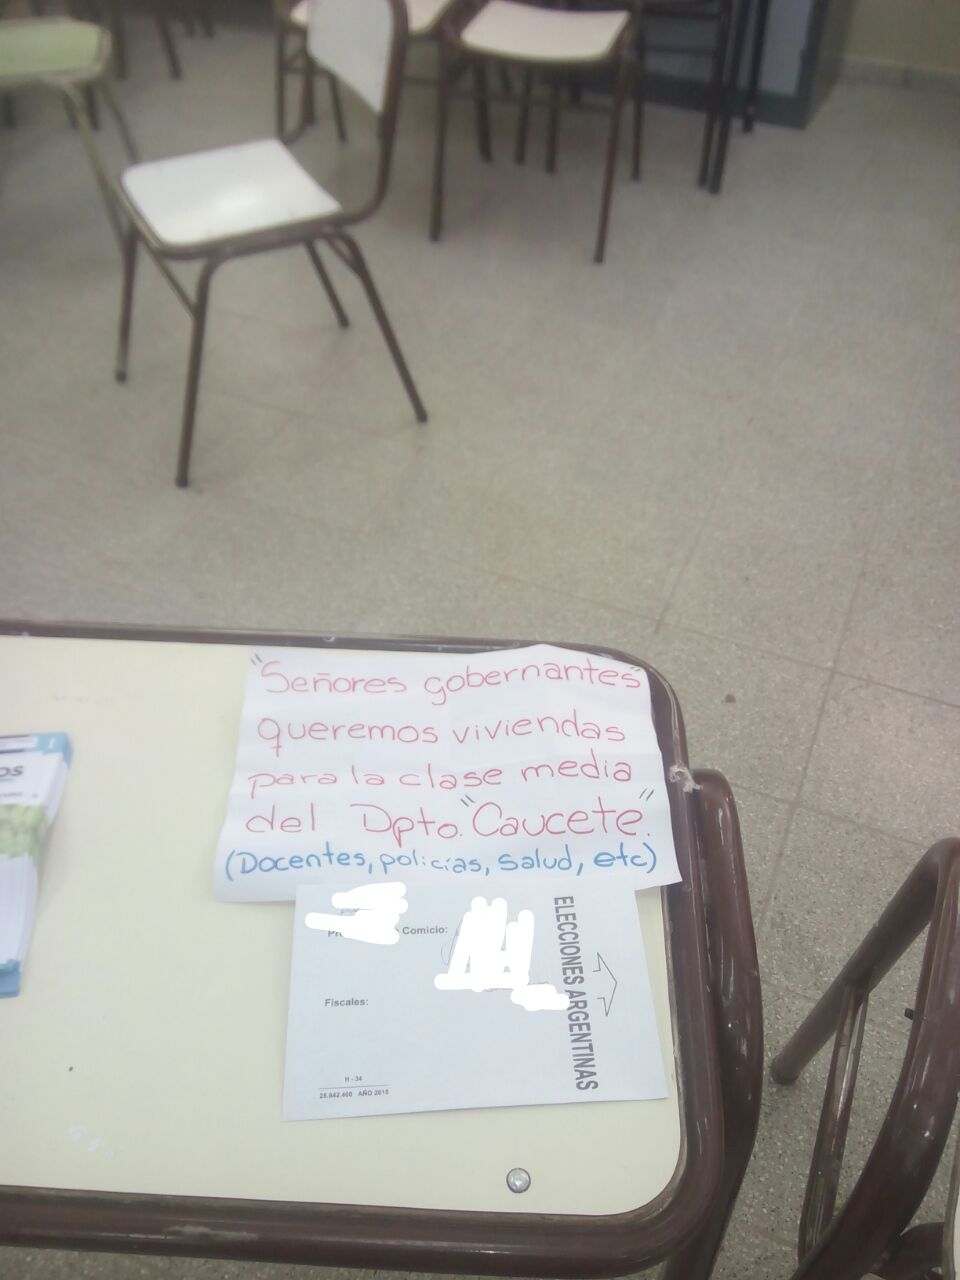 "Señores gobernantes"
queremos viviendas
para la clase media
del Dpto. "Caucete".
(Docentes, policías, Salud, etc)
Comicio:
ELECCIONES ARGENTINAS
Fiscales:
H - 34
AÑO 2015
OS